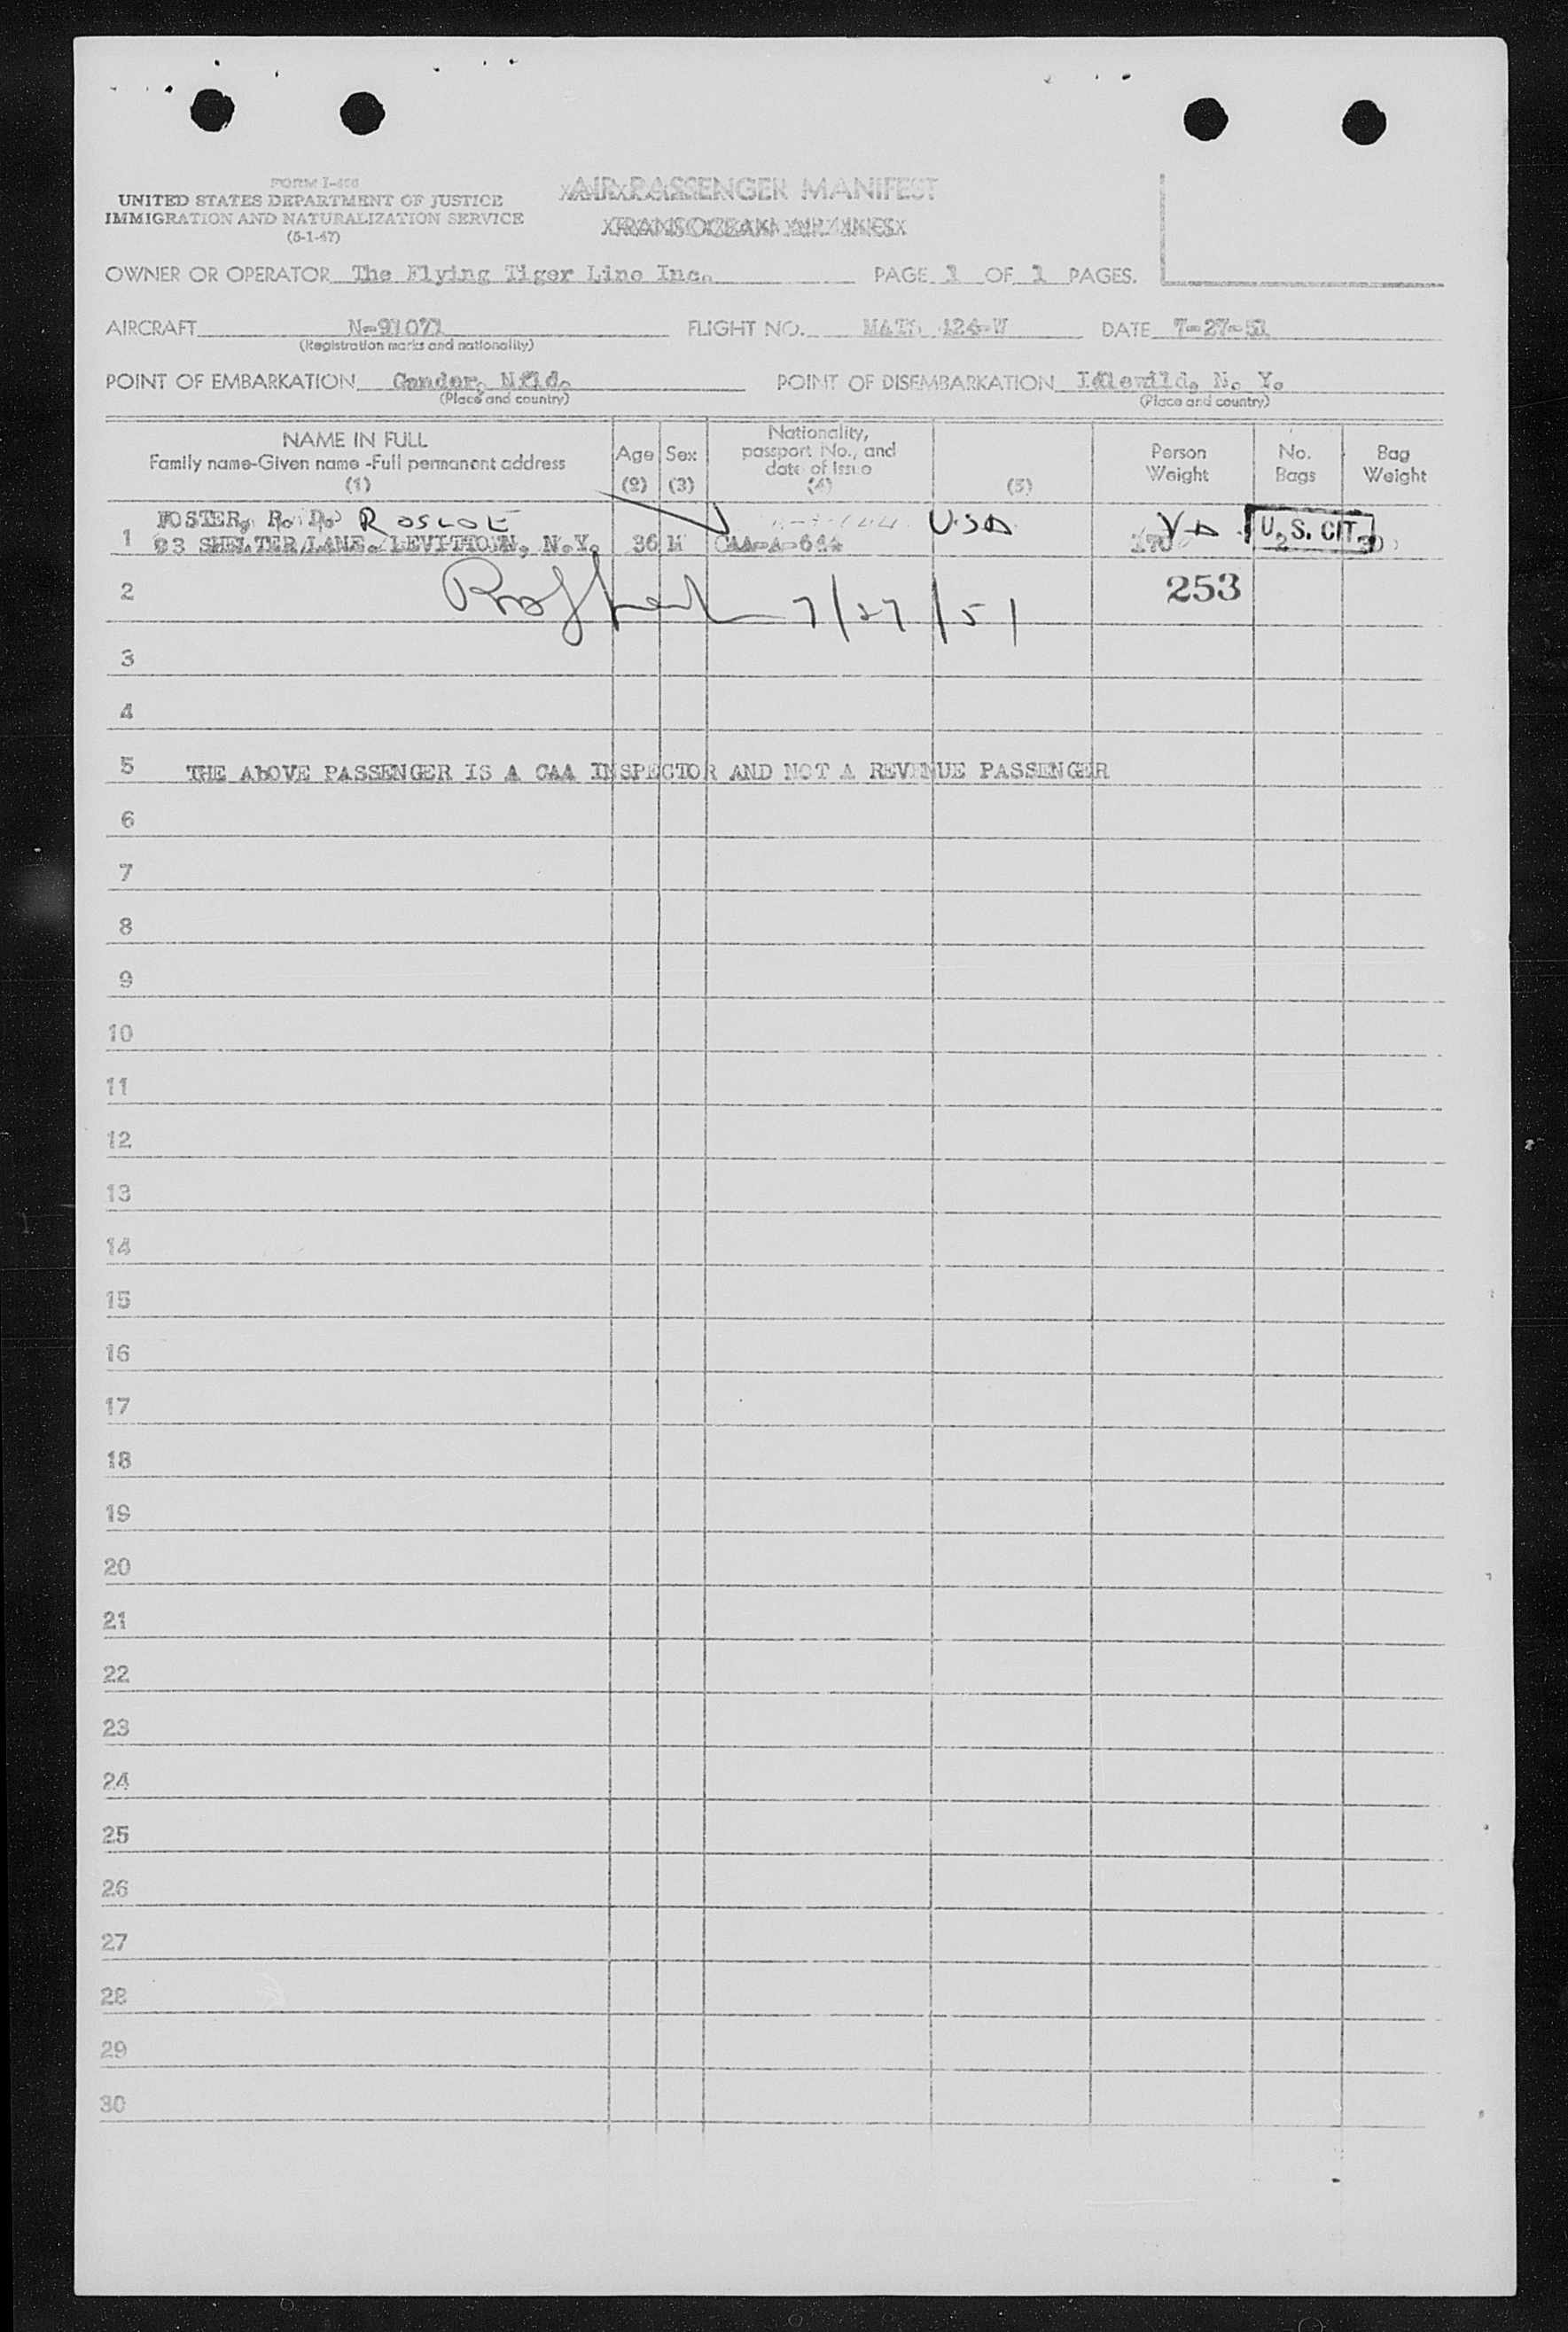 FORM I-466
UNITED STATES DEPARTMENT OF JUSTICE
IMMIGRATION AND NATURALIZATION SERVICE
(5-1-47)
AIR PASSENGER MANIFEST
TRANSOCEAN AIR LINES
OWNER OR OPERATOR The Flying Tiger Line Inc. PAGE 1 OF 1 PAGES.
AIRCRAFT N-91071 FLIGHT NO. MATS 124-W DATE 7-27-51
(Registration marks and nationality)
POINT OF EMBARKATION Gander, Nfld. POINT OF DISEMBARKATION Idlewild, N. Y.
(Place and country) (Place and country)
NAME IN FULL
Family name-Given name -Full permanent address
(1)
Age
(2)
Sex
(3)
Nationality,
passport No., and
date of Issue
(4)
(5)
Person
Weight
No.
Bags
Bag
Weight
FOSTER, R. D. ROSCOE USA U.S. CIT.
1 23 SHELTER LANE. LEVITTOWN, N.Y. 36 M CAA-A-644 170 2
2 7/27/51 253
3
4
5 THE ABOVE PASSENGER IS A CAA INSPECTOR AND NOT A REVENUE PASSENGER
6
7
8
9
10
11
12
13
14
15
16
17
18
19
20
21
22
23
24
25
26
27
28
29
30